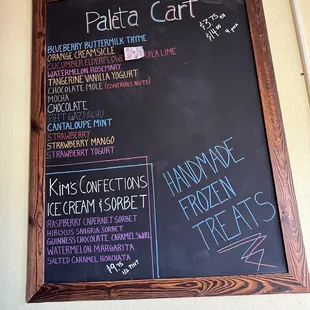 Paleta Cart
$3.75 ea
$14.00
4 pack
BLUEBERRY BUTTERMILK THYME
ORANGE CREAMSICLE
CUCUMBER ELDERFLOWER
WATERMELON ROSEMARY
TANGERINE VANILLA YOGURT
CHOCOLATE MOLE (CONTAINS NUTS)
MOCHA
CHOCOLATE
CANTALOUPE MINT
STRAWBERRY
STRAWBERRY MANGO
STRAWBERRY YOGURT
KIM'S CONFECTIONS
ICE CREAM & SORBET
RASPBERRY CABERNET SORBET
HIBISCUS SANGRIA SORBET
GUINNESS CHOCOLATE CARAMEL SWIRL
WATERMELON MARGARITA
SALTED CARAMEL HORCHATA
$9.75
HANDMADE
FROZEN
TREATS